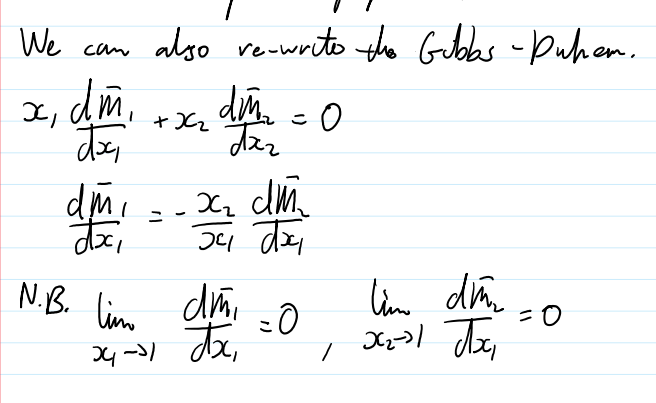 We can also re-write the Gibbs-Duhem.
x₁ dm̄₁/dx₁ + x₂ dm̄₂/dx₂ = 0
dm̄₁/dx₁ = - x₂/x₁ dm̄₂/dx₁
N.B. lim x₁→1 dm̄₁/dx₁ = 0 , lim x₂→1 dm̄₂/dx₁ = 0